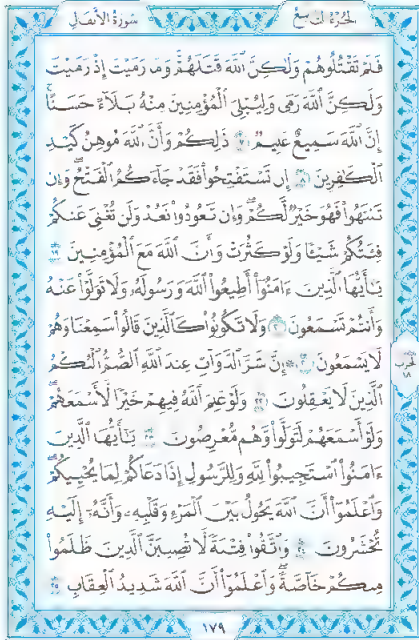 سورة الأنفال
الجزء التاسع
فَلَمْ تَقْتُلُوهُمْ وَلَٰكِنَّ ٱللَّهَ قَتَلَهُمْ وَمَا رَمَيْتَ إِذْ رَمَيْتَ
وَلَٰكِنَّ ٱللَّهَ رَمَىٰ وَلِيُبْلِىَ ٱلْمُؤْمِنِينَ مِنْهُ بَلَآءً حَسَنًا
إِنَّ ٱللَّهَ سَمِيعٌ عَلِيمٌ ١٧ ذَٰلِكُمْ وَأَنَّ ٱللَّهَ مُوهِنُ كَيْدِ
ٱلْكَٰفِرِينَ ١٨ إِن تَسْتَفْتِحُوا۟ فَقَدْ جَآءَكُمُ ٱلْفَتْحُ وَإِن
تَنتَهُوا۟ فَهُوَ خَيْرٌ لَّكُمْ وَإِن تَعُودُوا۟ نَعُدْ وَلَن تُغْنِىَ عَنكُمْ
فِئَتُكُمْ شَيْـًٔا وَلَوْ كَثُرَتْ وَأَنَّ ٱللَّهَ مَعَ ٱلْمُؤْمِنِينَ ١٩
يَٰٓأَيُّهَا ٱلَّذِينَ ءَامَنُوٓا۟ أَطِيعُوا۟ ٱللَّهَ وَرَسُولَهُۥ وَلَا تَوَلَّوْا۟ عَنْهُ
وَأَنتُمْ تَسْمَعُونَ ٢٠ وَلَا تَكُونُوا۟ كَٱلَّذِينَ قَالُوا۟ سَمِعْنَا وَهُمْ
لَا يَسْمَعُونَ ٢١ ۞ إِنَّ شَرَّ ٱلدَّوَآبِّ عِندَ ٱللَّهِ ٱلصُّمُّ ٱلْبُكْمُ
ٱلَّذِينَ لَا يَعْقِلُونَ ٢٢ وَلَوْ عَلِمَ ٱللَّهُ فِيهِمْ خَيْرًا لَّأَسْمَعَهُمْ
وَلَوْ أَسْمَعَهُمْ لَتَوَلَّوا۟ وَّهُم مُّعْرِضُونَ ٢٣ يَٰٓأَيُّهَا ٱلَّذِينَ
ءَامَنُوا۟ ٱسْتَجِيبُوا۟ لِلَّهِ وَلِلرَّسُولِ إِذَا دَعَاكُمْ لِمَا يُحْيِيكُمْ
وَٱعْلَمُوٓا۟ أَنَّ ٱللَّهَ يَحُولُ بَيْنَ ٱلْمَرْءِ وَقَلْبِهِۦ وَأَنَّهُۥٓ إِلَيْهِ
تُحْشَرُونَ ٢٤ وَٱتَّقُوا۟ فِتْنَةً لَّا تُصِيبَنَّ ٱلَّذِينَ ظَلَمُوا۟
مِنكُمْ خَآصَّةً وَٱعْلَمُوٓا۟ أَنَّ ٱللَّهَ شَدِيدُ ٱلْعِقَابِ ٢٥
الحزب
١٨
١٧٩